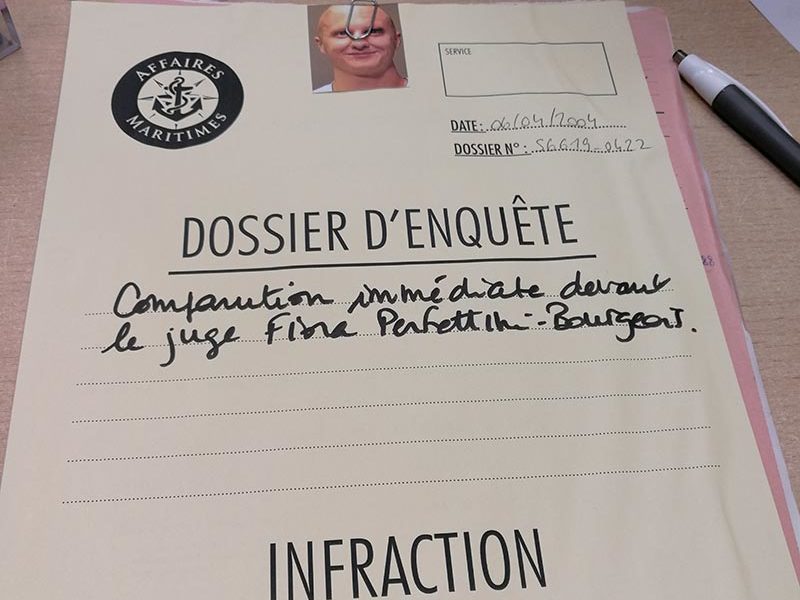 AFFAIRES
MARITIMES
SERVICE
DATE: 06/04/2004
DOSSIER N°: SGG19-0422
DOSSIER D'ENQUÊTE
Comparution immédiate devant
le juge Fiora Perfettini-Bourgeois.
88
INFRACTION